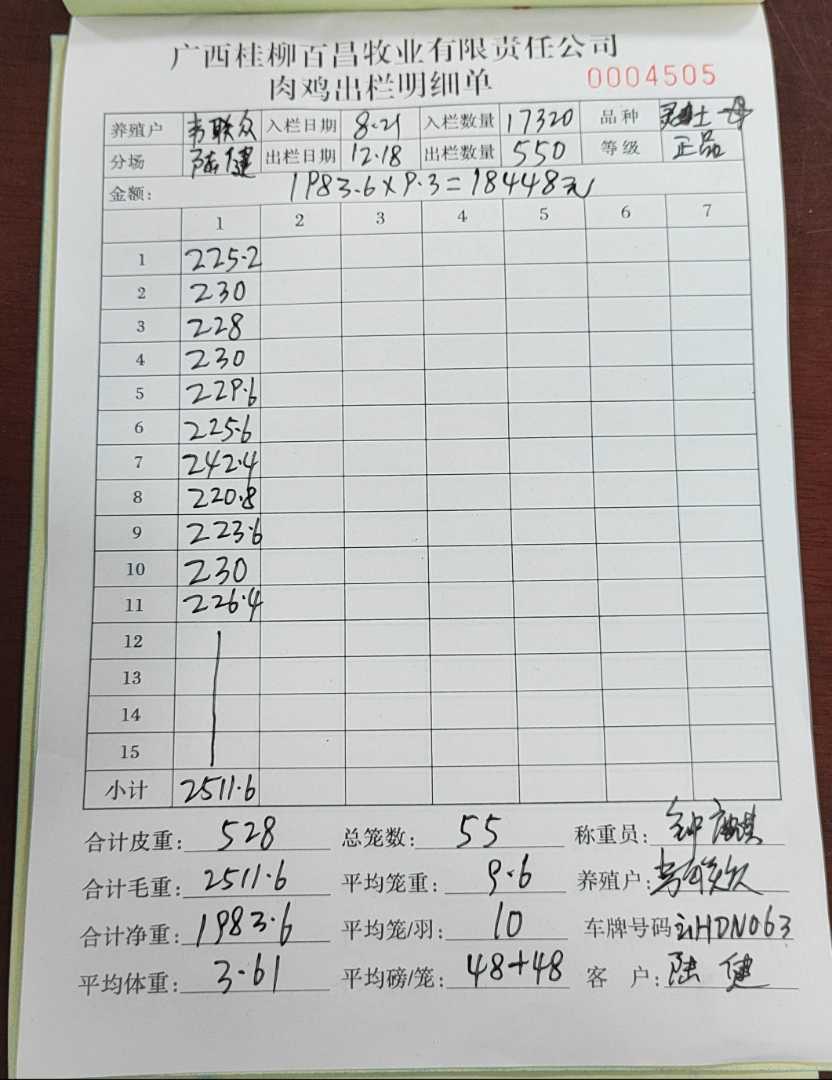 广西桂柳百昌牧业有限责任公司
肉鸡出栏明细单 0004505
养殖户 韦联众 入栏日期 8.21 入栏数量 17320 品种 土
分场 陆健 出栏日期 12.18 出栏数量 550 等级 正品
金额: 1983.6×9.3=18448元
1 2 3 4 5 6 7
1 225.2
2 230
3 228
4 230
5 229.6
6 225.6
7 242.4
8 220.8
9 223.6
10 230
11 226.4
12
13
14
15
小计 2511.6
合计皮重: 528 总笼数: 55 称重员: 钟
合计毛重: 2511.6 平均笼重: 9.6 养殖户: 韦联众
合计净重: 1983.6 平均笼/羽: 10 车牌号码 HDN063
平均体重: 3.61 平均磅/笼: 48+48 客户: 陆健